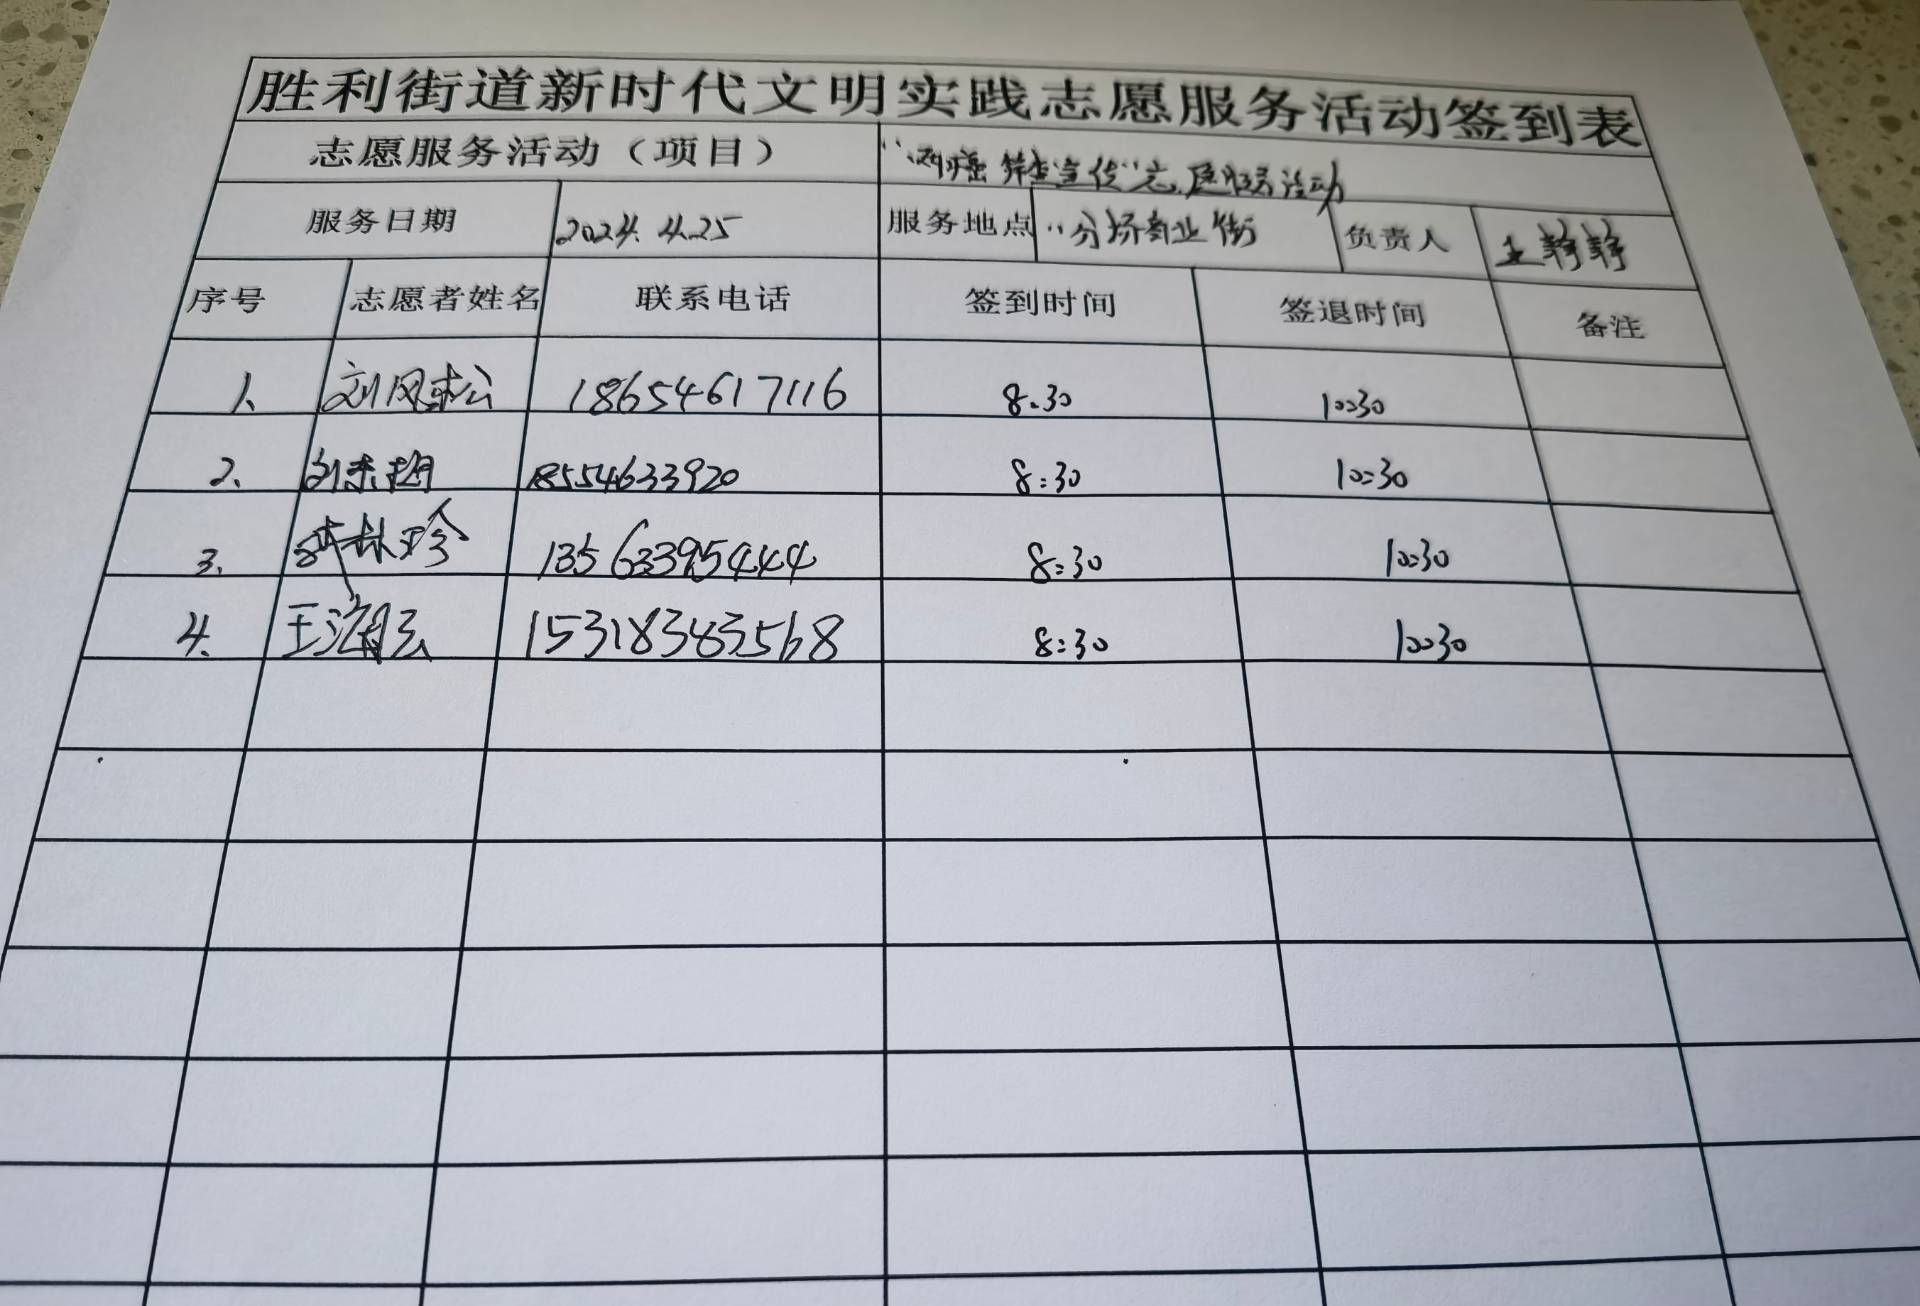 胜利街道新时代文明实践志愿服务活动签到表
志愿服务活动（项目） "两癌筛查宣传"志愿服务活动
服务日期 2024.4.25 服务地点 分场商业街 负责人 王静静
序号 志愿者姓名 联系电话 签到时间 签退时间 备注
1、 刘凤松 18654617116 8:30 10:30
2、 18554633920 8:30 10:30
3、 13563395444 8:30 10:30
4、 王海云 15318383568 8:30 10:30